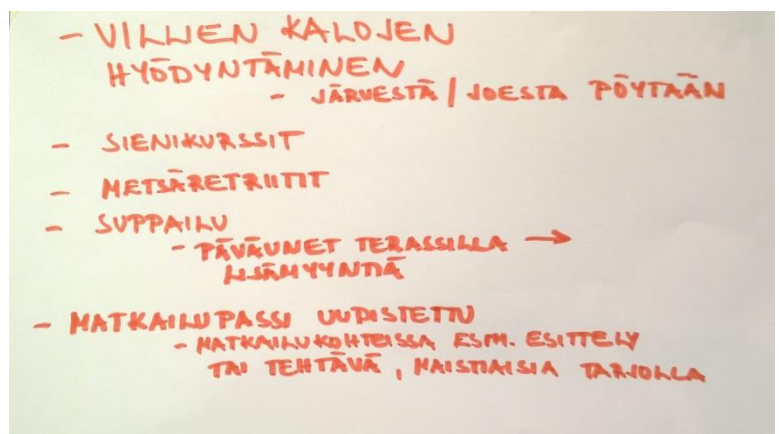 - VILLIEN KALOJEN
HYÖDYNTÄMINEN
- JÄRVESTÄ / JOESTA PÖYTÄÄN
- SIENIKURSSIT
- METSÄRETRIITIT
- SUPPAILU
- PÄVÄUNET TERASSILLA →
LISÄMYYNTIÄ
- MATKAILUPASSI UUDISTETTU
- MATKAILUKOHTEISSA ESM. ESITTELY
TAI TEHTÄVÄ, MAISTIAISIA TARJOLLA